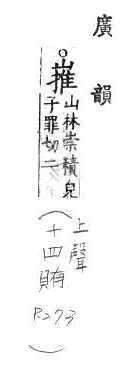 廣韻
○嶊山林崇積皃
子罪切二
(上聲
十四賄
P.273)